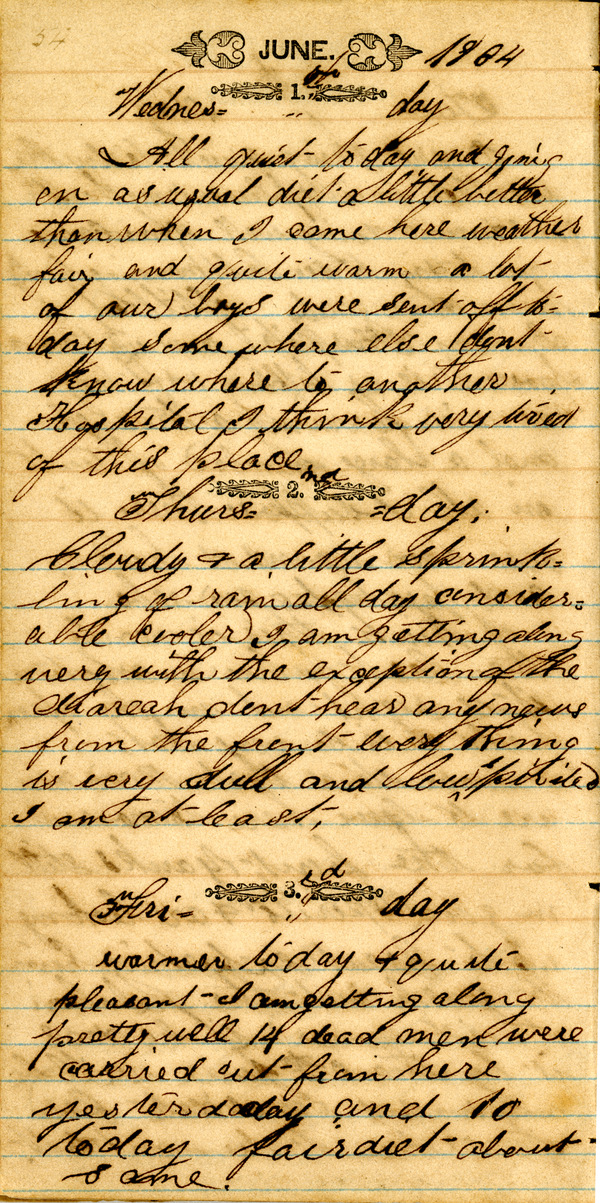 34
JUNE. 1864
1.st
Wednes= " day
All quiet to day and going
on as usual diet a little better
than when I came here weather
fair and quite warm a lot
of our boys were sent off to=
day some where else dont
know where to another
Hospital I think very tired
of this place
2.nd
Thurs= =day.
Cloudy & a little sprink=
ling of rain all day consider=
able cooler I am getting along
very with the exception of the
diareah dont hear any news
from the front every thing
is very dull and low spirited
I am at least.
3.rd
Fri= " day
warmer to day & quite
pleasant I am getting along
pretty well 14 dead men were
carried out from here
yesterdaday and 10
today fair diet about
same.